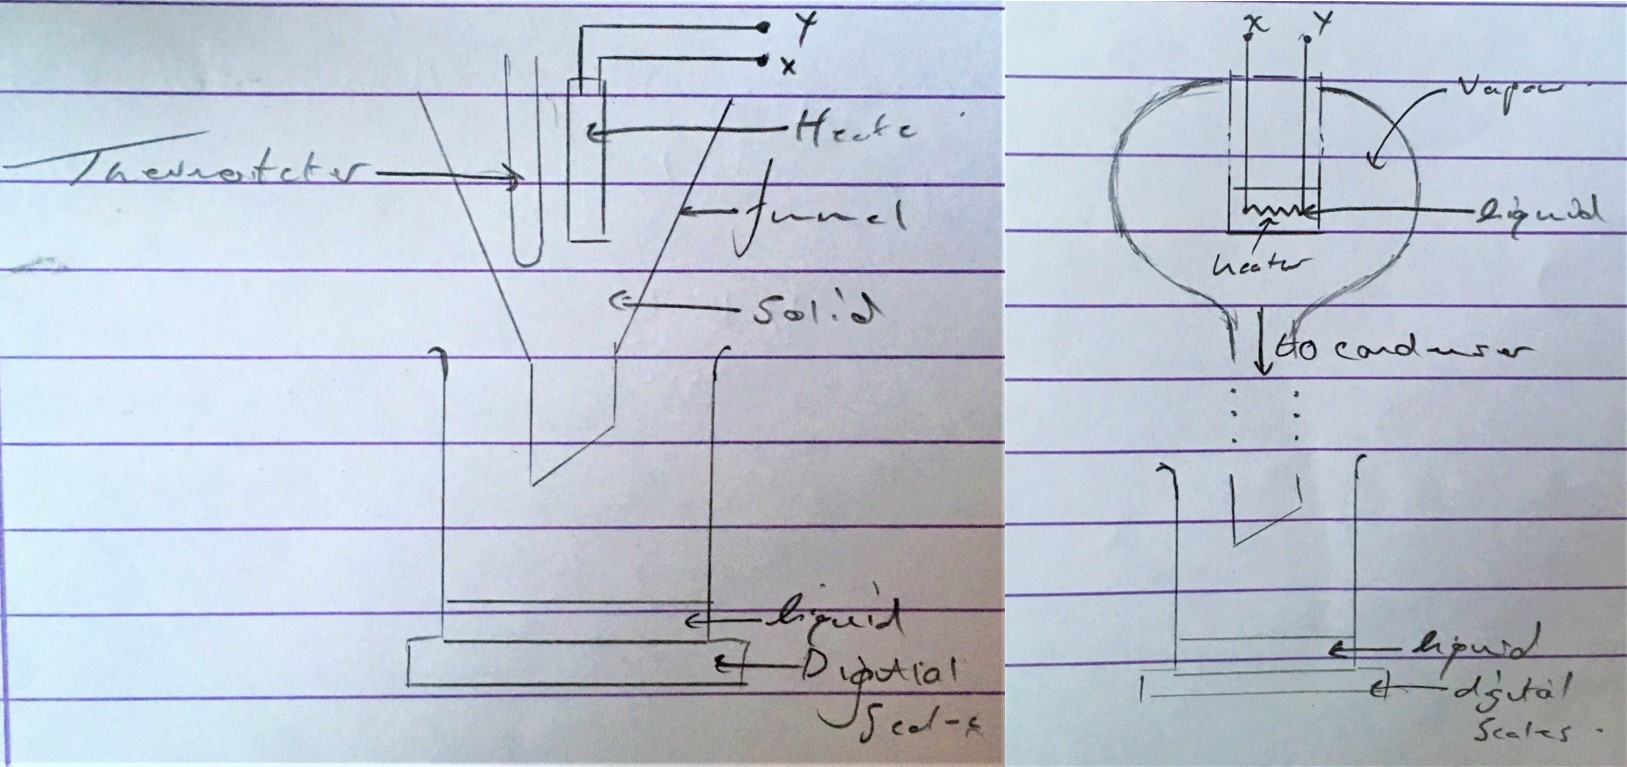 Y
x
Heate
Thermoteter
funnel
Solid
liquid
Digitial
Scal-s
x Y
Vapour
liquid
heater
to condenser
liquid
digital
Scales.